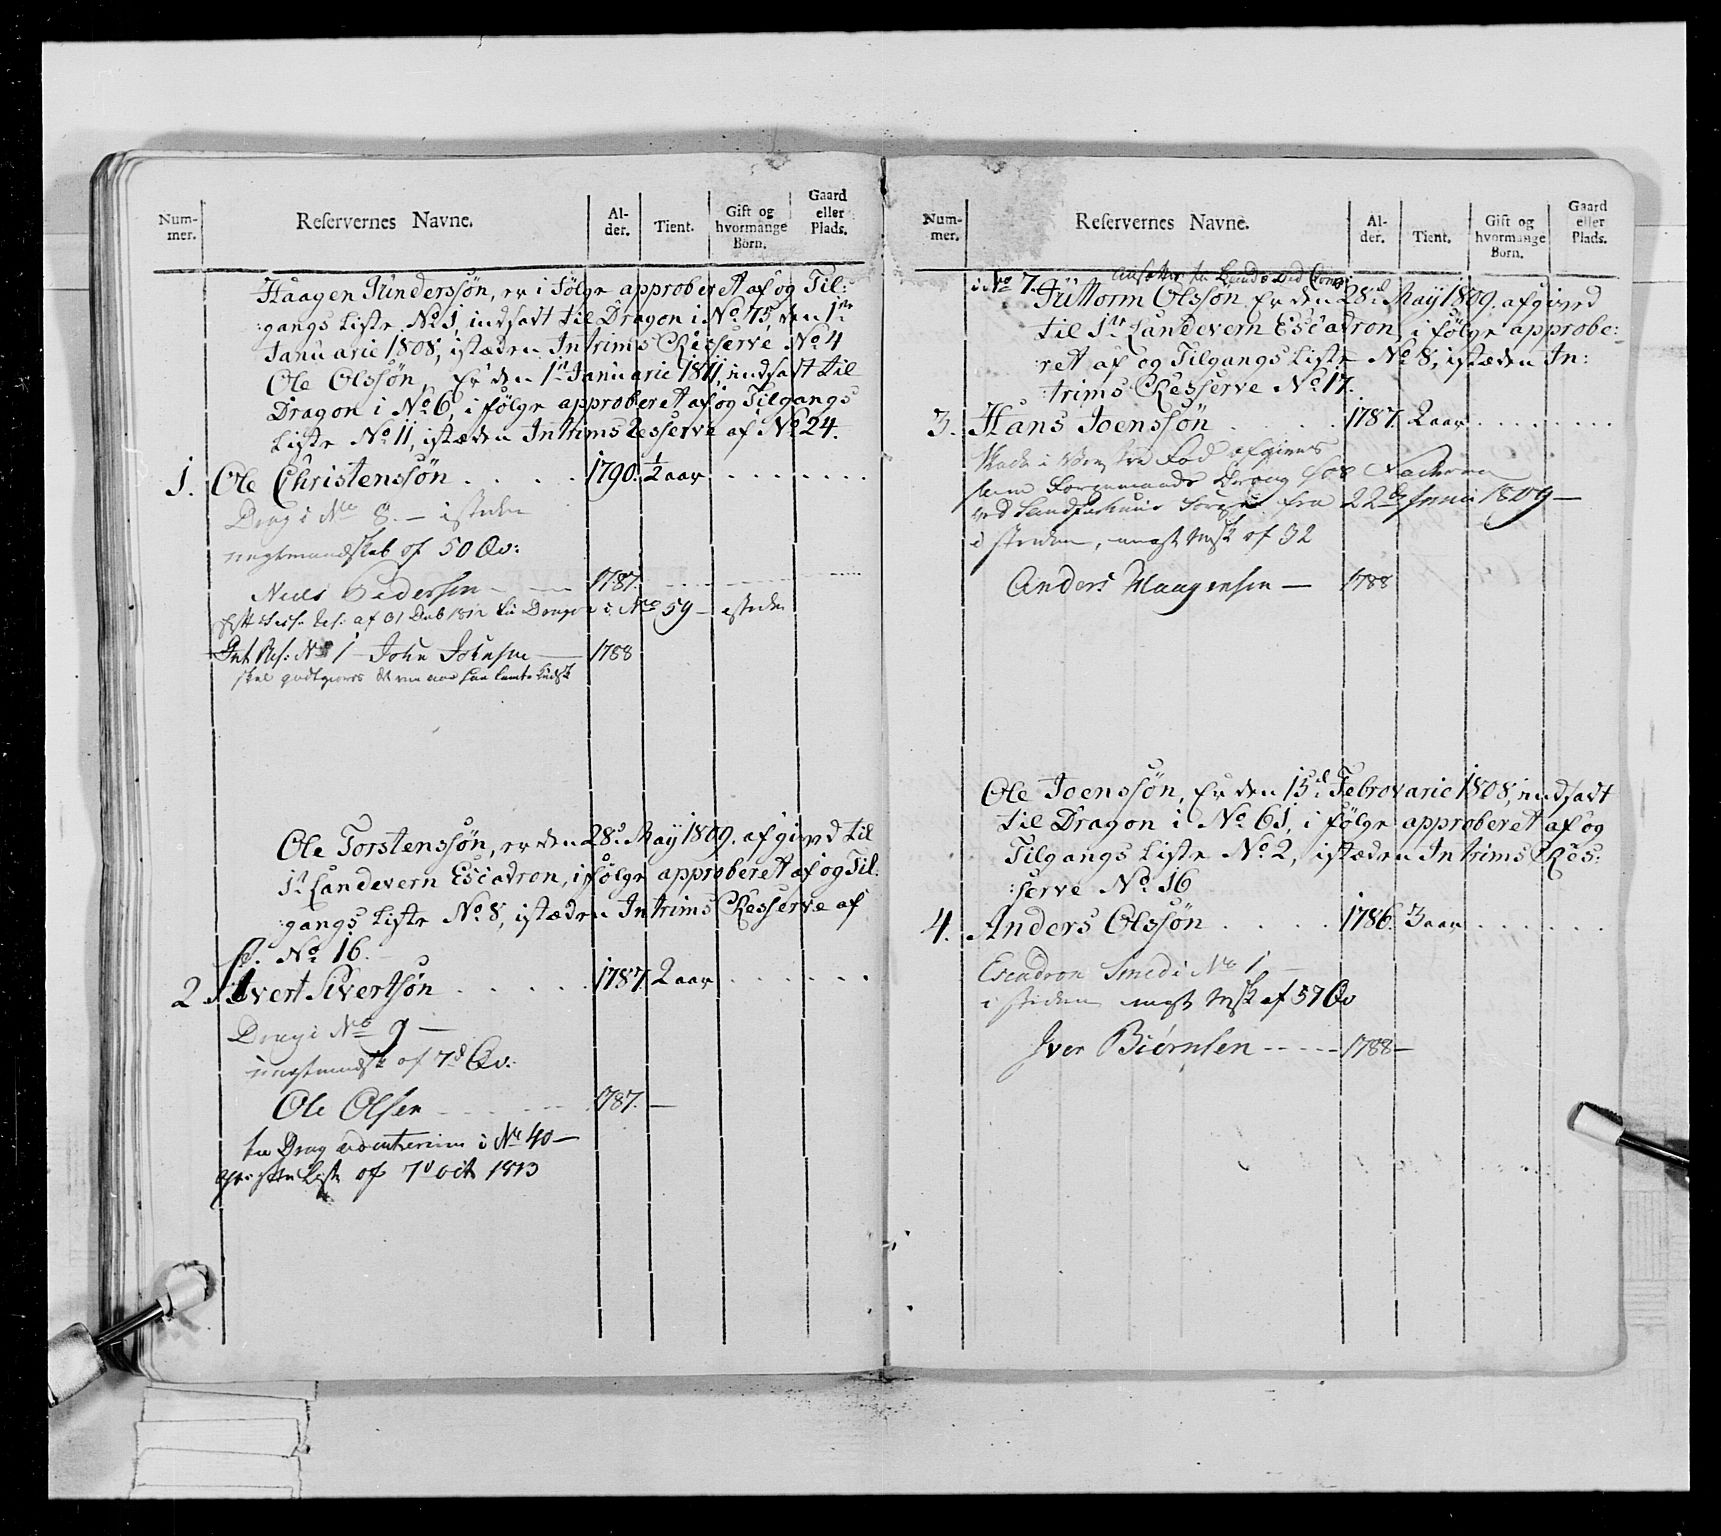 Num-
mer.
Reservernes Navne.
Al-
der.
Tient.
Gift og
hvormange
Börn.
Gaard
eller
Plads.
Haagen Gunderssön, er i Fölge approberet af og Til:
gangs Liste No 1, indsadt til Dragon i No 75, den 1te
Januarie 1808, istæden Intrims Resserve No 4
Ole Olssön, Er den 1te Januarie 1811, indsadt til
Dragon i No 6, i fölge approberet af og Tilgangs
Liste No 11, istæden Intrims Resserve af No 24.
1. Ole Christenssön 1790. 1/2 aar
Drag i No 8. — isteden
ungtmandskab of 50 Qv:
Niels Pedersen 1787.
af 31 Dcb 1812 til Dragon i No 59 — isteden
Int Res: No 1 John Johnsen 1788
skal godtgiøres
Ole Torstenssön, er den 28d May 1809. afgived til
1te Landevern Escadron, ifölge approberet af og Til:
gangs Liste No 8, istæden Intrims Resserve af
No 16.
2. Sivert Sivertsön 1787. 2 aar
Drag i No 9 —
ungtmandsk of 7d Qv:
Ole Olsen 1787. —
til Drag i No 40 —
Liste of 7d oct 1813
Num-
mer.
Reservernes Navne.
Al-
der.
Tient.
Gift og
hvormange
Börn.
Gaard
eller
Plads.
i No 7.
Guttorm Olssön, Er den 28d May 1809. afgived
til 1te Landevern Escadron, i fölge approbe:
ret af og Tilgangs Liste No 8, istæden In:
trims Resserve No 17.
3. Hans Joenssön 1787. 2 aar
i Venstre Fod afgives
som
ved fra 22de Junii 1809 —
i steden, ungt Msk of 32
Anders Haagensen — 1788
Ole Joenssön, Er den 15d Febrovarie 1808, indsadt
til Dragon i No 61, i fölge approberet af og
Tilgangs Liste No 2, istæden Intrims Res:
serve No 16
4. Anders Olssön 1786. 3 aar
Escadron Smed i No 1 —
i steden ungt Msk af 57 Qv
Iver Biörnsen 1788 —